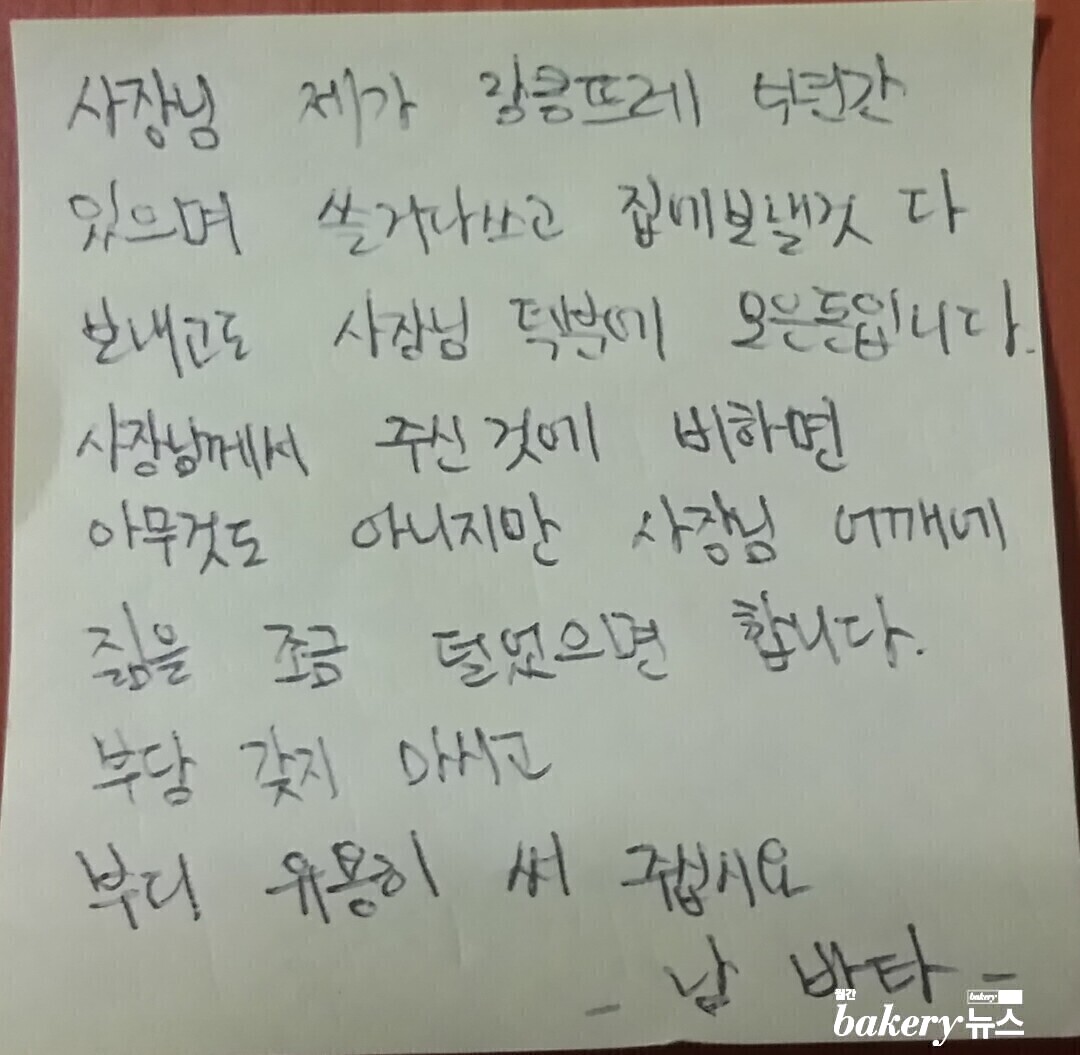 사장님 제가 캉콩뜨레 석년간
있으며 쓸거다쓰고 집에보낼것 다
보내고도 사장님 덕분에 모은돈입니다.
사장님께서 주신것에 비하면
아무것도 아니지만 사장님 어깨에
짊을 조금 덜었으면 합니다.
부담 갖지 마시고
부디 유용히 써 주십시요
- 남 바타 -
월간 bakery
bakery 뉴스